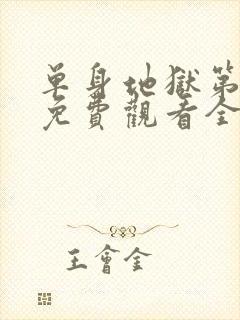 单身地獄第
免費觀看全
王會金